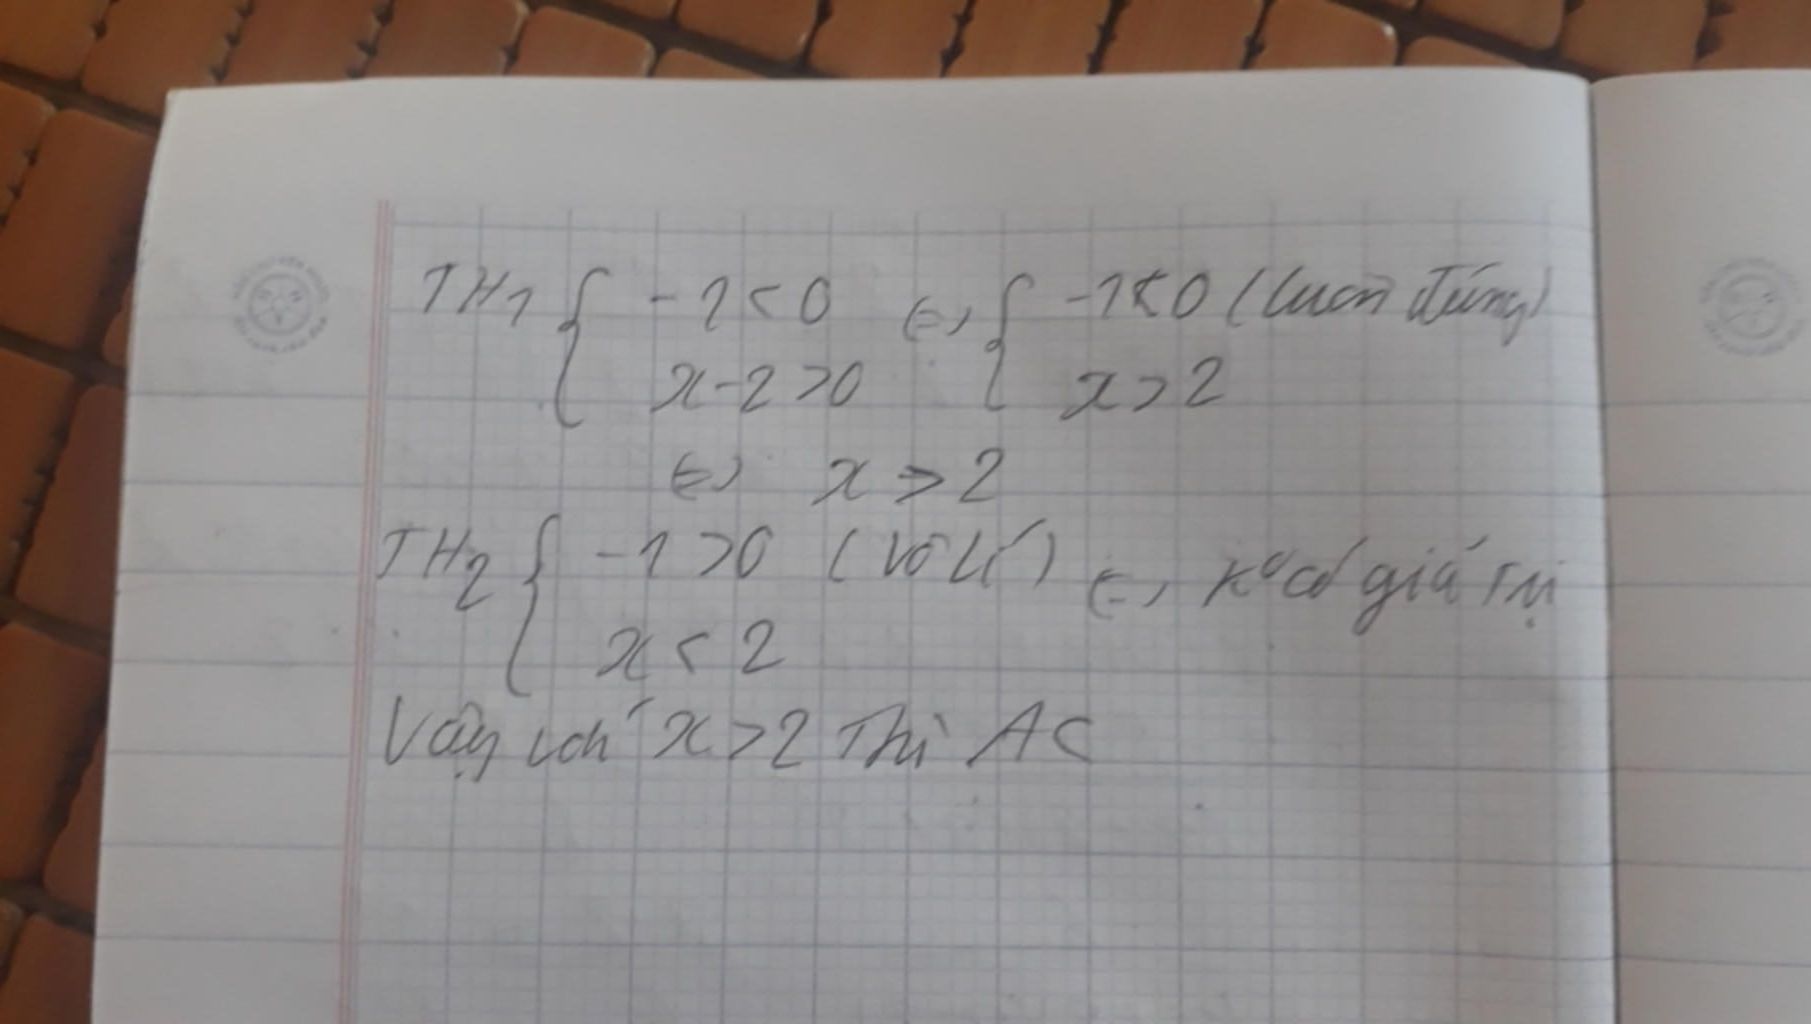 TH1 { -1 < 0 ⇔ { -1 < 0 (luôn đúng)
x - 2 > 0 x > 2
⇔ x > 2
TH2 { -1 > 0 (vô lí) ⇔ K° có giá trị
x < 2
Vậy với x > 2 Thì A <